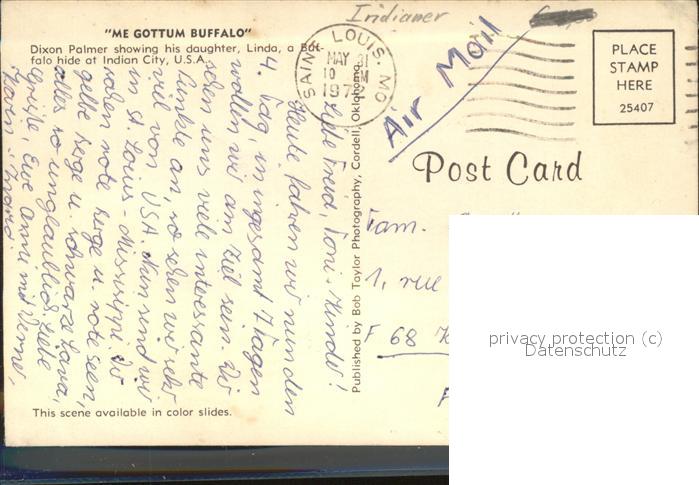 Indianer
"ME GOTTUM BUFFALO"
Dixon Palmer showing his daughter, Linda, a Buf-
falo hide at Indian City, U.S.A.
SAINT LOUIS, MO
MAY 31
10 M
1972
Air Mail
PLACE
STAMP
HERE
25407
Post Card
Published by Bob Taylor Photography, Cordell, Oklahoma
Liebe Fredi, Toni + Kinder!
Heute fahren wir nun den
4. Tag, in insgesamt 7 Tagen
wollen wir am Ziel sein. Wir
sehen uns viele interessante
Punkte an, so sehen wir sehr
viel von USA. Nun sind wir
in St. Louis - Mississippi. Wir
sahen rote Berge u. rote Seen,
gelbe Berge u. schwarze Lava,
alles so unglaublich. Liebe
Grüße, Eure Anni mit Werner,
Fam.
1, rue
F 68
F
This scene available in color slides.
privacy protection (c)
Datenschutz